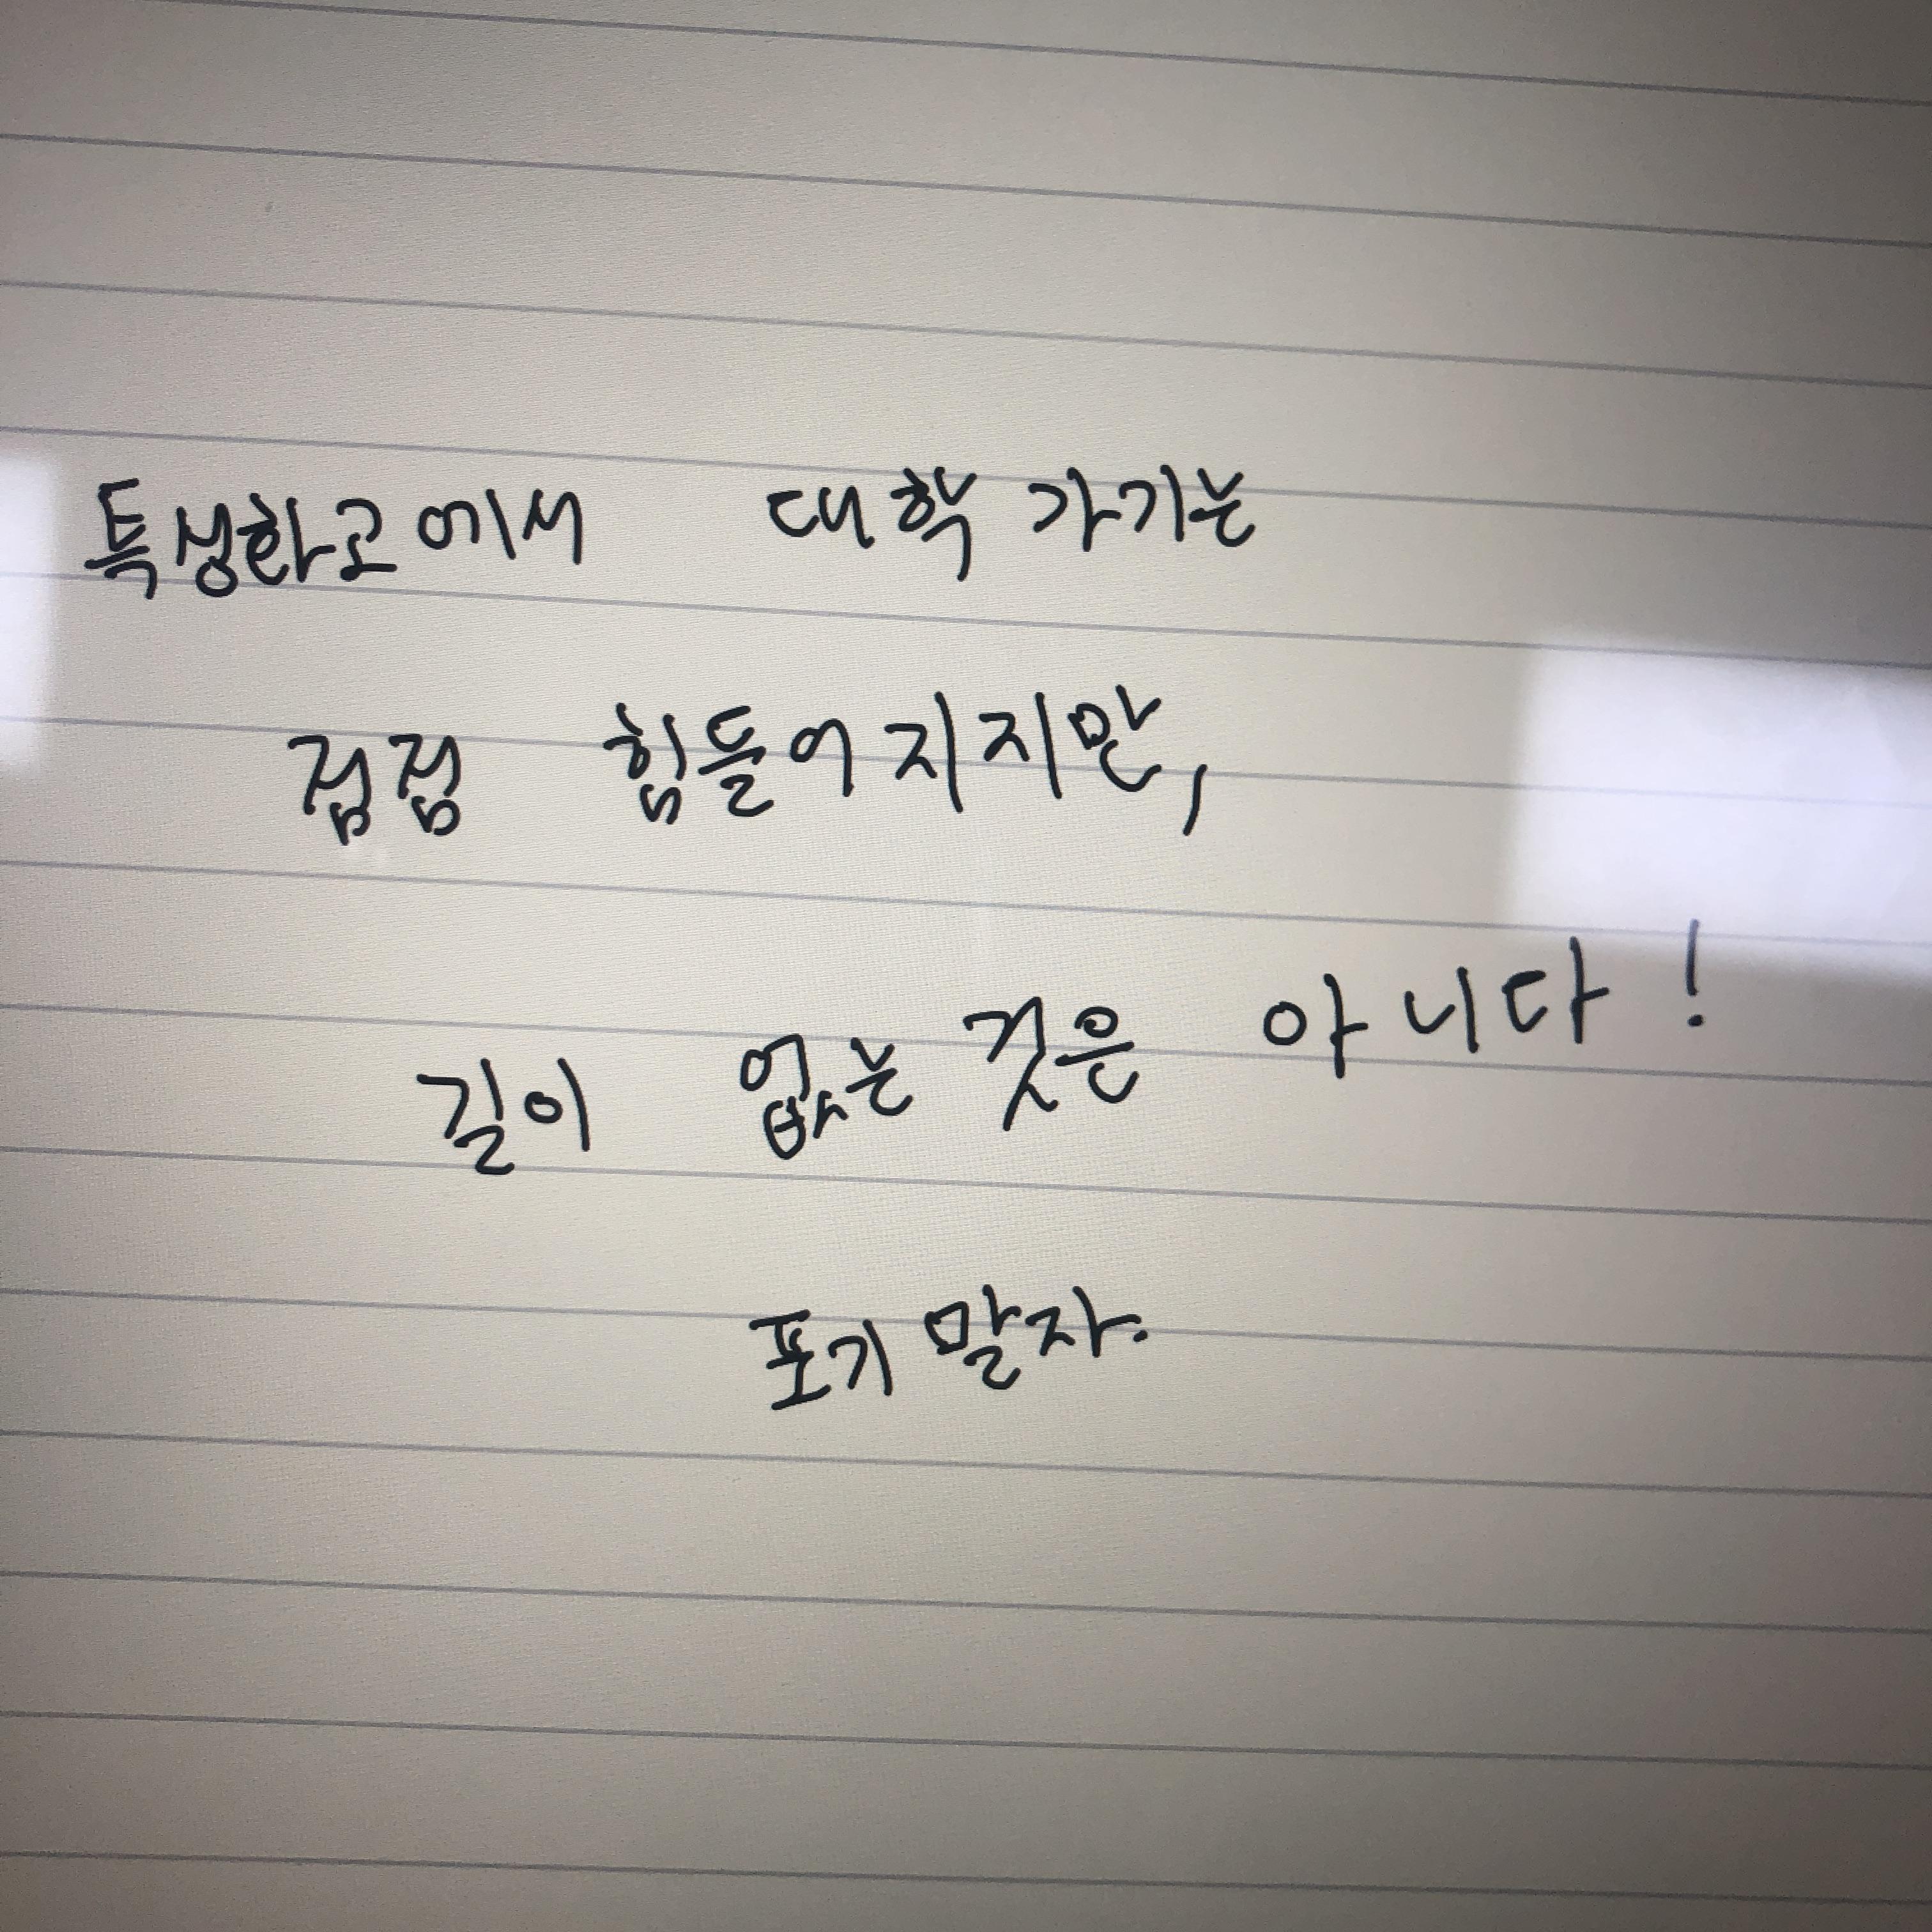 특성화고에서 대학 가기는
점점 힘들어지지만,
길이 없는 것은 아니다!
포기 말자.